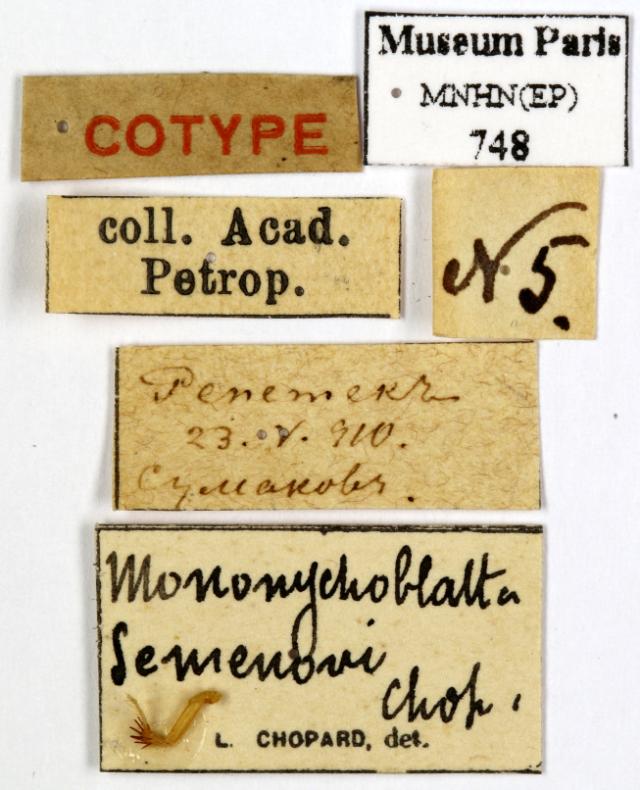 Museum Paris
MNHN(EP)
748
COTYPE
coll. Acad.
Petrop.
N. 5.
Репетекъ
23. V. 910.
Сумаковъ.
Mononychoblatta
Semenovi
Chop.
L. CHOPARD, det.